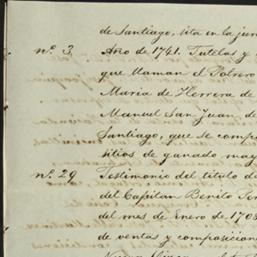 de Santiago, sita en la jur
nº. 3 Año de 1741. Titulos y
que llaman el Potrero
Maria de Herrera de
Manuel San Juan de
Santiago, que se compo
sitios de ganado may
nº. 29 Testimonio del titulo de
del Capitan Benito
del mes de Enero de 170
de ventas y composicion